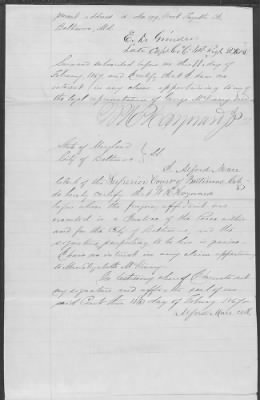 present address is No 179 West Fayette St
Baltimore, Md.
E. D. Grinder
Late Capt Co C 4th Regt
Sworn and subscribed before me this 11 day of
February 1867 and I certify that I have no
interest in any claim appertaining to any of
the legal representatives of George McKinney dec'd
Hayward
State of Maryland
City of Baltimore } SS
I Alfred Mace
Clerk of the Superior Court of Baltimore City
do hereby certify that Hayward
before whom the foregoing affidavit was
executed is a Justice of the Peace in
and for the City of Baltimore, and the
signature purporting to be his is genuine.
I have no interest in any claim appertaining
to Mrs Elizabeth McKinney
In testimony whereof I hereunto set
my signature and affix the seal of
said Court this day of February 1867
Alfred Mace Clk